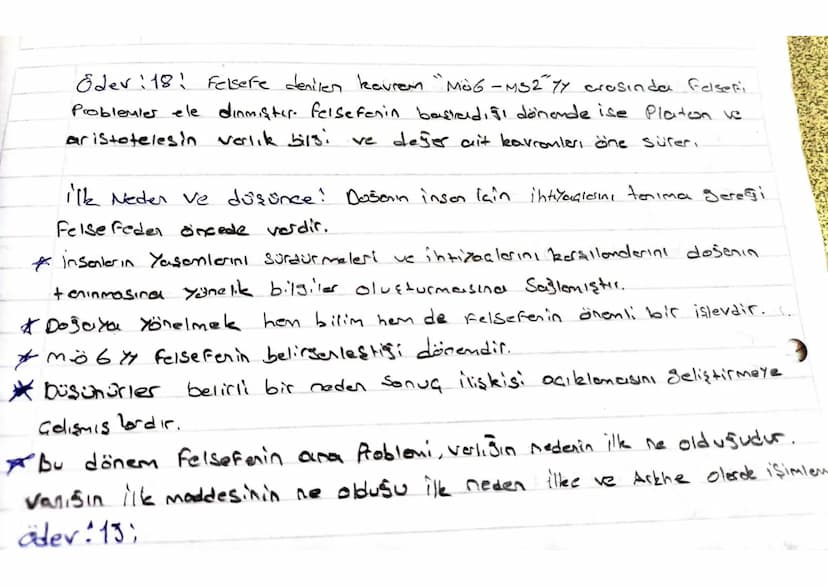 Ödev: 18: Felsefe denilen kavram "Mö6 - MS2" yy arasında Felsefi
Problemler ele alınmıştır. felsefenin başladığı dönemde ise Platon ve
aristotelesin varlık bilgi ve değer ait kavramları öne sürer.
İlk Neden ve düşünce: Doğanın insan için ihtiyaçlarını tanıma gereği
Felsefeden öncede vardır.
* insanların yaşamlarını sürdürmeleri ve ihtiyaçlarını karşılamalarını doğanın
tanınmasına yönelik bilgiler oluşturmasına sağlamıştır.
* Doğaya yönelmek hem bilim hem de Felsefenin önemli bir işlevdir.
* MÖ 6 yy felsefenin belirgenleştiği dönemdir.
* Düşünürler belirli bir neden sonuç ilişkisi açıklamasını geliştirmeye
Çalışmışlardır.
* bu dönem Felsefenin ana Problemi, varlığın nedenin ilk ne olduğudur.
varlığın ilk maddesinin ne olduğu ilk neden ilke ve Arkhe olarak işimlen
ödev: 13: